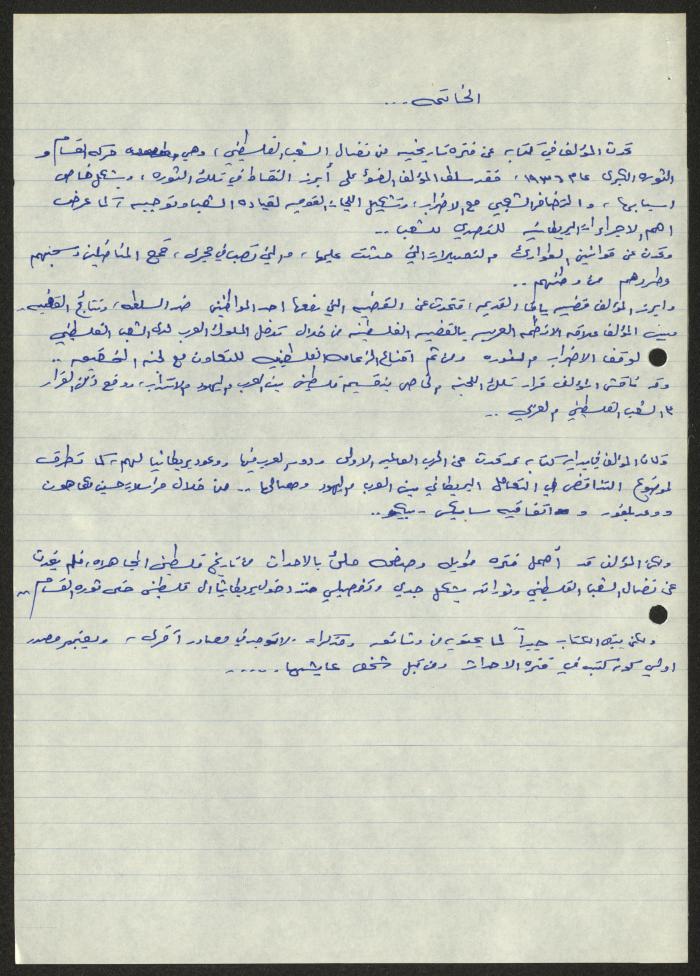 الخاتمه ...
تحدث المؤلف في كتابه عن فتره تاريخيه من نضال الشعب الفلسطيني، وهي حركه القسام و
الثوره الكبرى عام ١٩٣٦، فقد سلط المؤلف الضوء على أبرز النقاط في تلك الثوره، وبشكل خاص
اسبابها، والتضافر الشعبي مع الاضراب، وتشكيل اللجان القوميه لقياده الشعب وتوجيهه، كما عرض
اهم الاجراءات البريطانيه للتصدي للشعب ..
وتحدث عن قوانين الطوارئ والتعديلات التي حدثت عليها، والتي تصب في مجرى، قمع المناضلين وسجنهم
وطردهم من وطنهم ..
وابرز المؤلف قضيه يافا القديمه، فتحدث عن القضيه التي رفعها احد المواطنين ضد السلطه، ونتائج القضيه ..
وبين المؤلف علاقه الانظمه العربيه بالقضيه الفلسطينيه من خلال تدخل الملوك العرب لدى الشعب الفلسطيني
لوقف الاضراب والثوره ومن ثم اقناع الزعامه الفلسطينيه للتعاون مع لجنه التحقيق ..
وقد ناقش المؤلف قرار تلك اللجنه والخاص بتقسيم فلسطين بين العرب واليهود والانتداب، ورفض ذلك القرار
من الشعب الفلسطيني والعربي ..
وكان المؤلف في بدايه كتابه قد تحدث عن الحرب العالميه الاولى ودور العرب فيها ووعود بريطانيا لهم، كما تطرق
لموضوع التناقض في التعامل البريطاني بين العرب واليهود ومصالحها .. من خلال مراسلات حسين مكماهون
ووعد بلفور و اتفاقيه سايكس - بيكو ..
ولكن المؤلف قد أهمل فتره طويله وصفحه ملئ بالاحداث من تاريخ فلسطين الجماهيره، فلم يتحدث
عن نضال الشعب الفلسطيني وثوراته بشكل جدي وتفصيلي منذ دخول بريطانيا الى فلسطين حتى ثوره القسام ..
ولكن يبقى الكتاب جيداً لما يحتويه من وثائق ومذكرات لا توجد في مصادر أخرى، ويعتبر مصدر
اولي كونه كتب في فتره الاحداث ومن قبل شخص عايشها ......